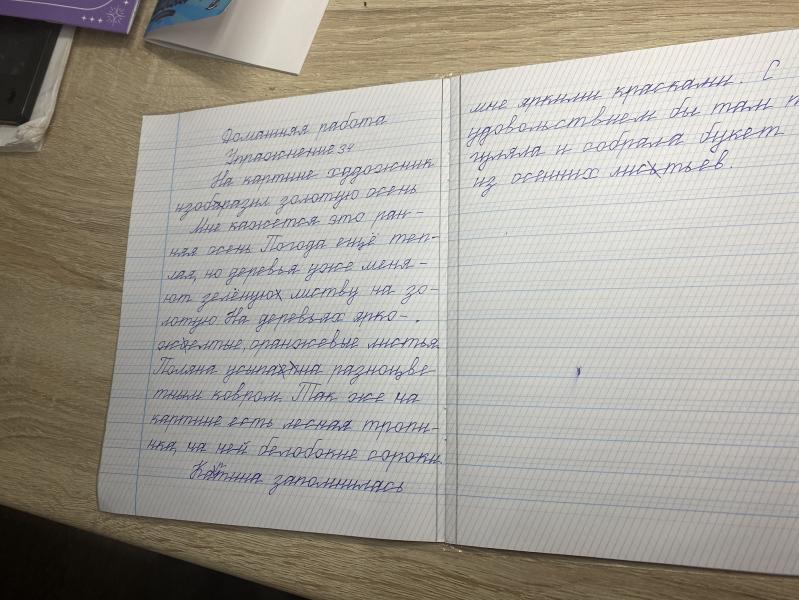 Домашняя работа
Упражнение 34
На картине художник
изобразил золотую осень
Мне кажется это ран-
няя осень Погода ещё теп-
лая, но деревья уже меня-
ют зелёную листву на зо-
лотую На деревьях ярко-
жёлтые, оранжевые листья.
Поляна усыпанна разноцве-
тным ковром. Так же на
картине есть лесная тропи-
нка, на ней белобокие сороки.
Картина запомнилась
мне яркими красками. С
удовольствием бы там п
гуляла и собрала букет
из осенних листьев.